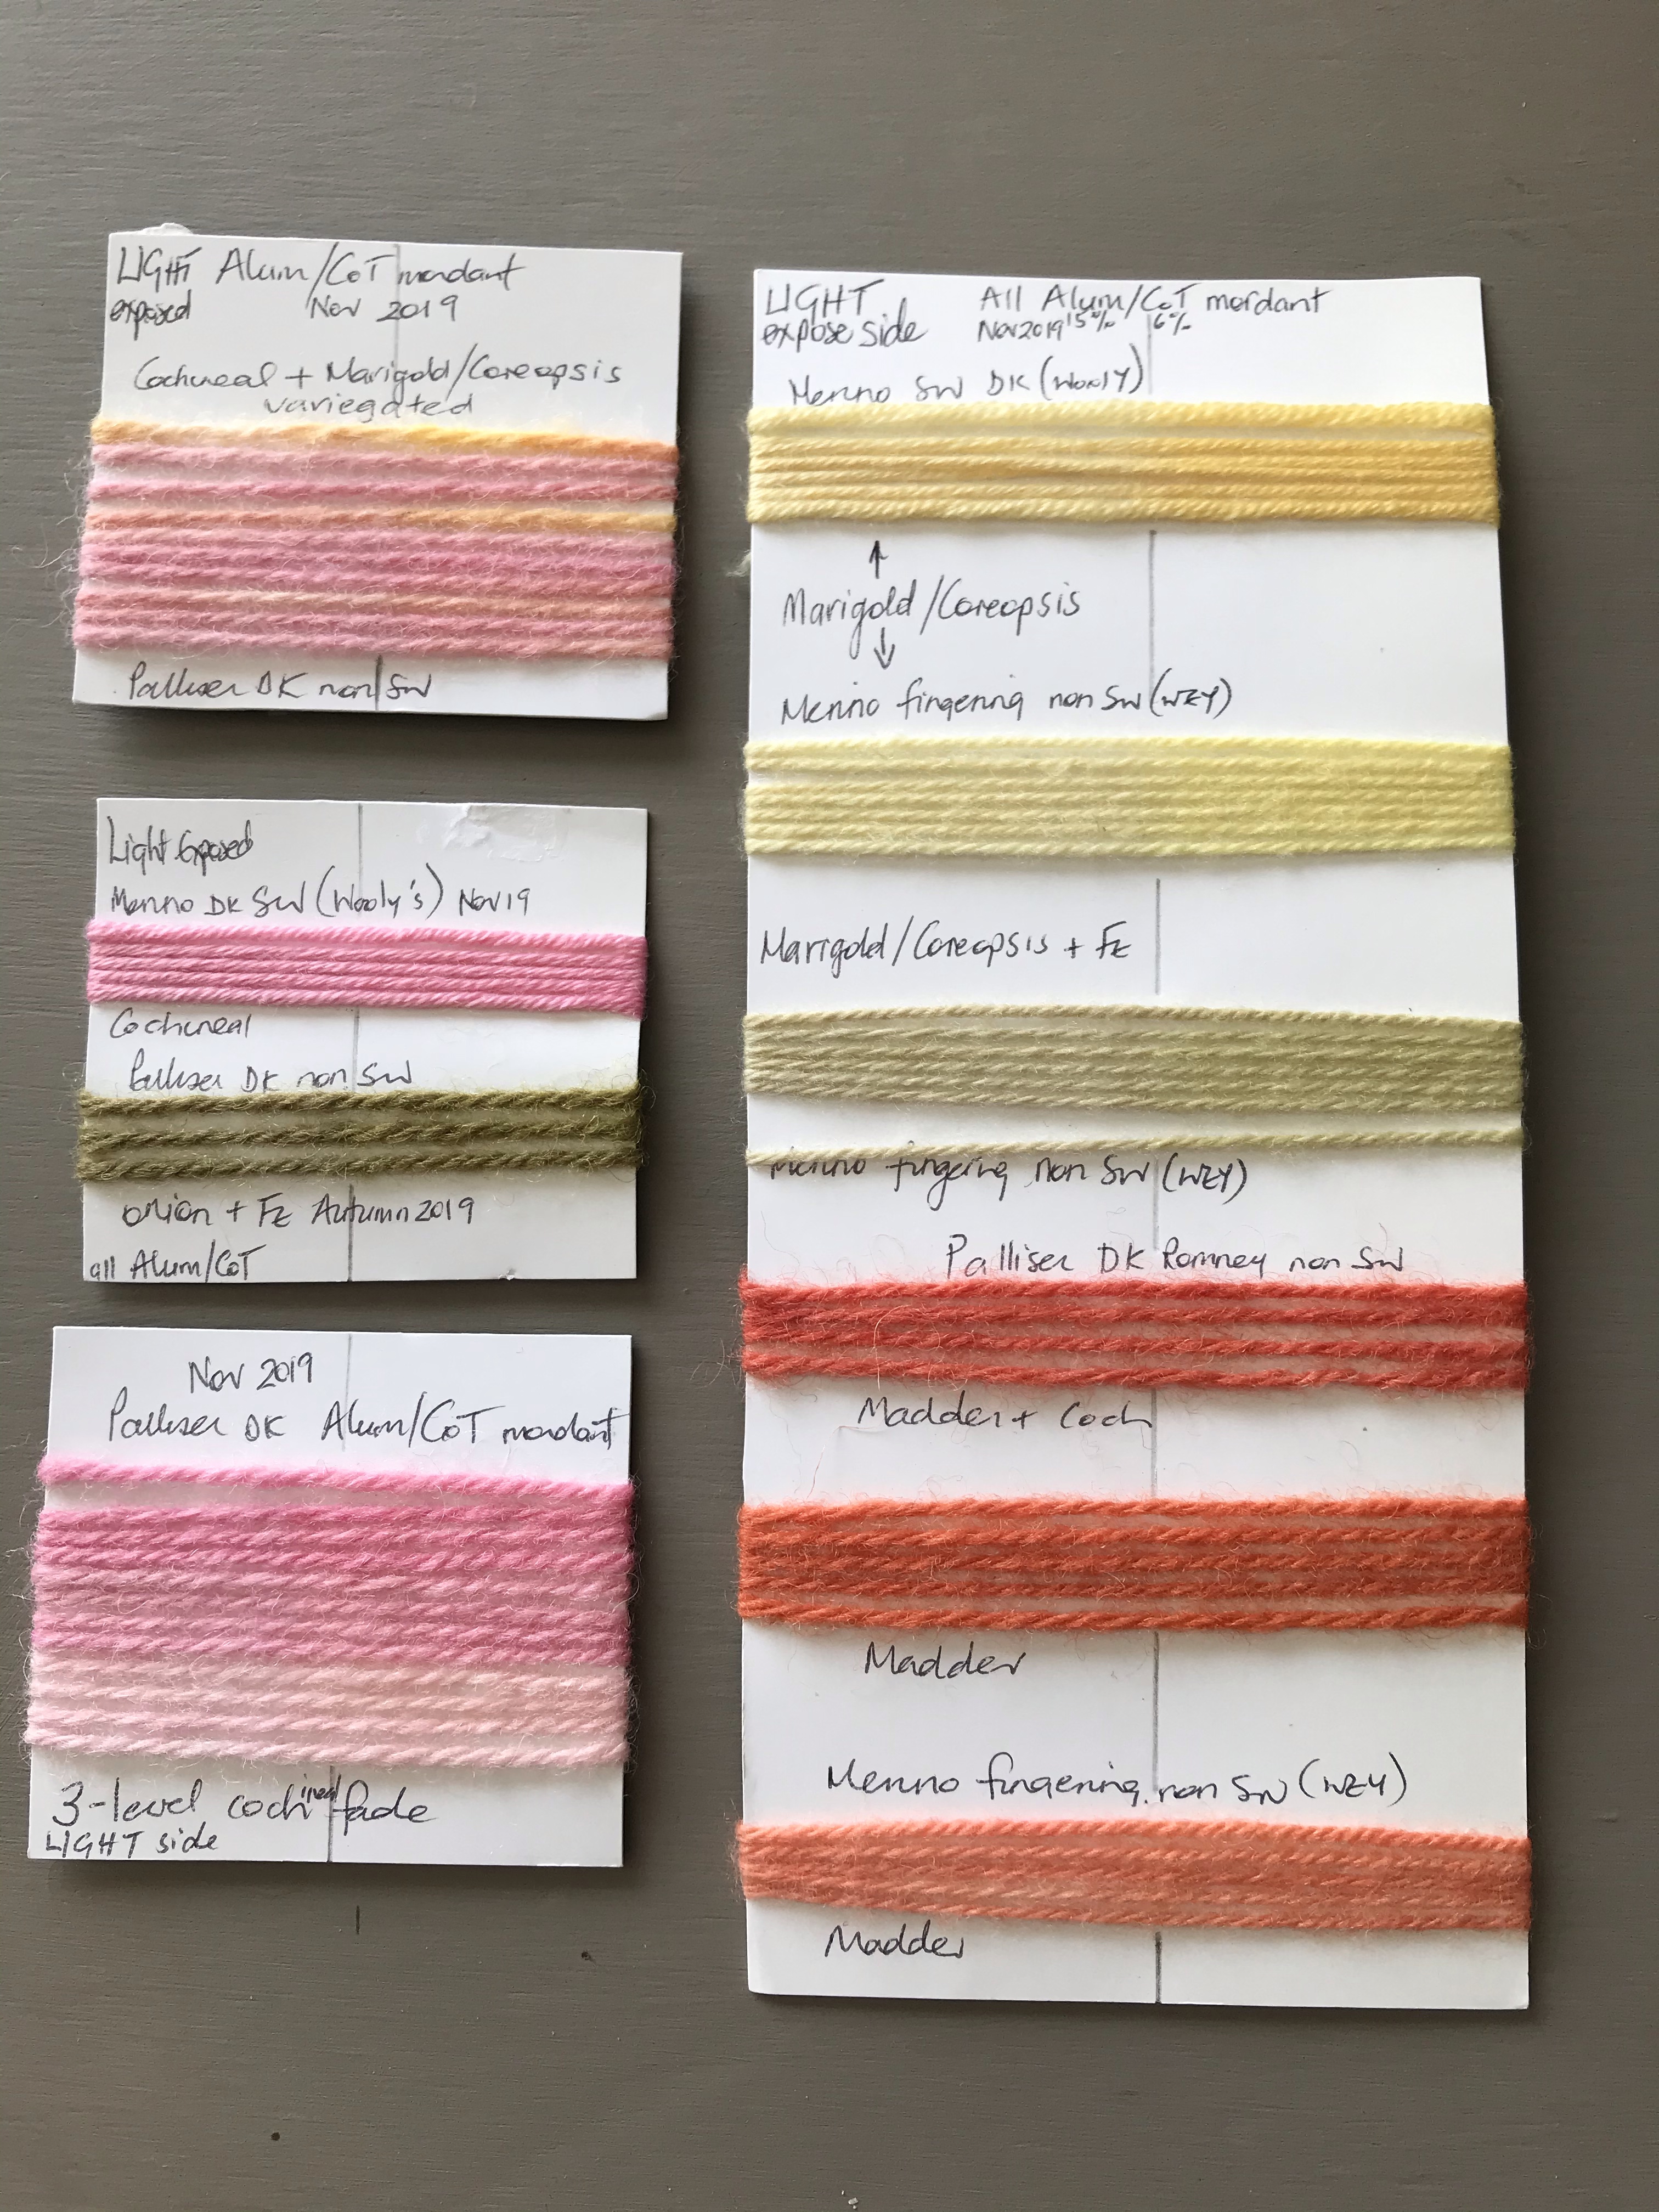 LIGHT Alum/CoT mordant
exposed Nov 2019
Cochineal + Marigold/Coreopsis
variegated
Palliser DK non SW
Light Exposed
Merino DK SW (Wooly's) Nov 19
Cochineal
Palliser DK non SW
onion + Fe Autumn 2019
all Alum/CoT
Nov 2019
Palliser DK Alum/CoT mordant
3-level cochineal fade
LIGHT side
LIGHT All Alum/CoT mordant
expose side Nov 2019 15% 6%
Merino SW DK (Wooly)
↑
Marigold/Coreopsis
↓
Merino fingering non SW (WEY)
Marigold/Coreopsis + Fe
Merino fingering non SW (WEY)
Palliser DK Romney non SW
Madder + Coch
Madder
Merino fingering non SW (WEY)
Madder